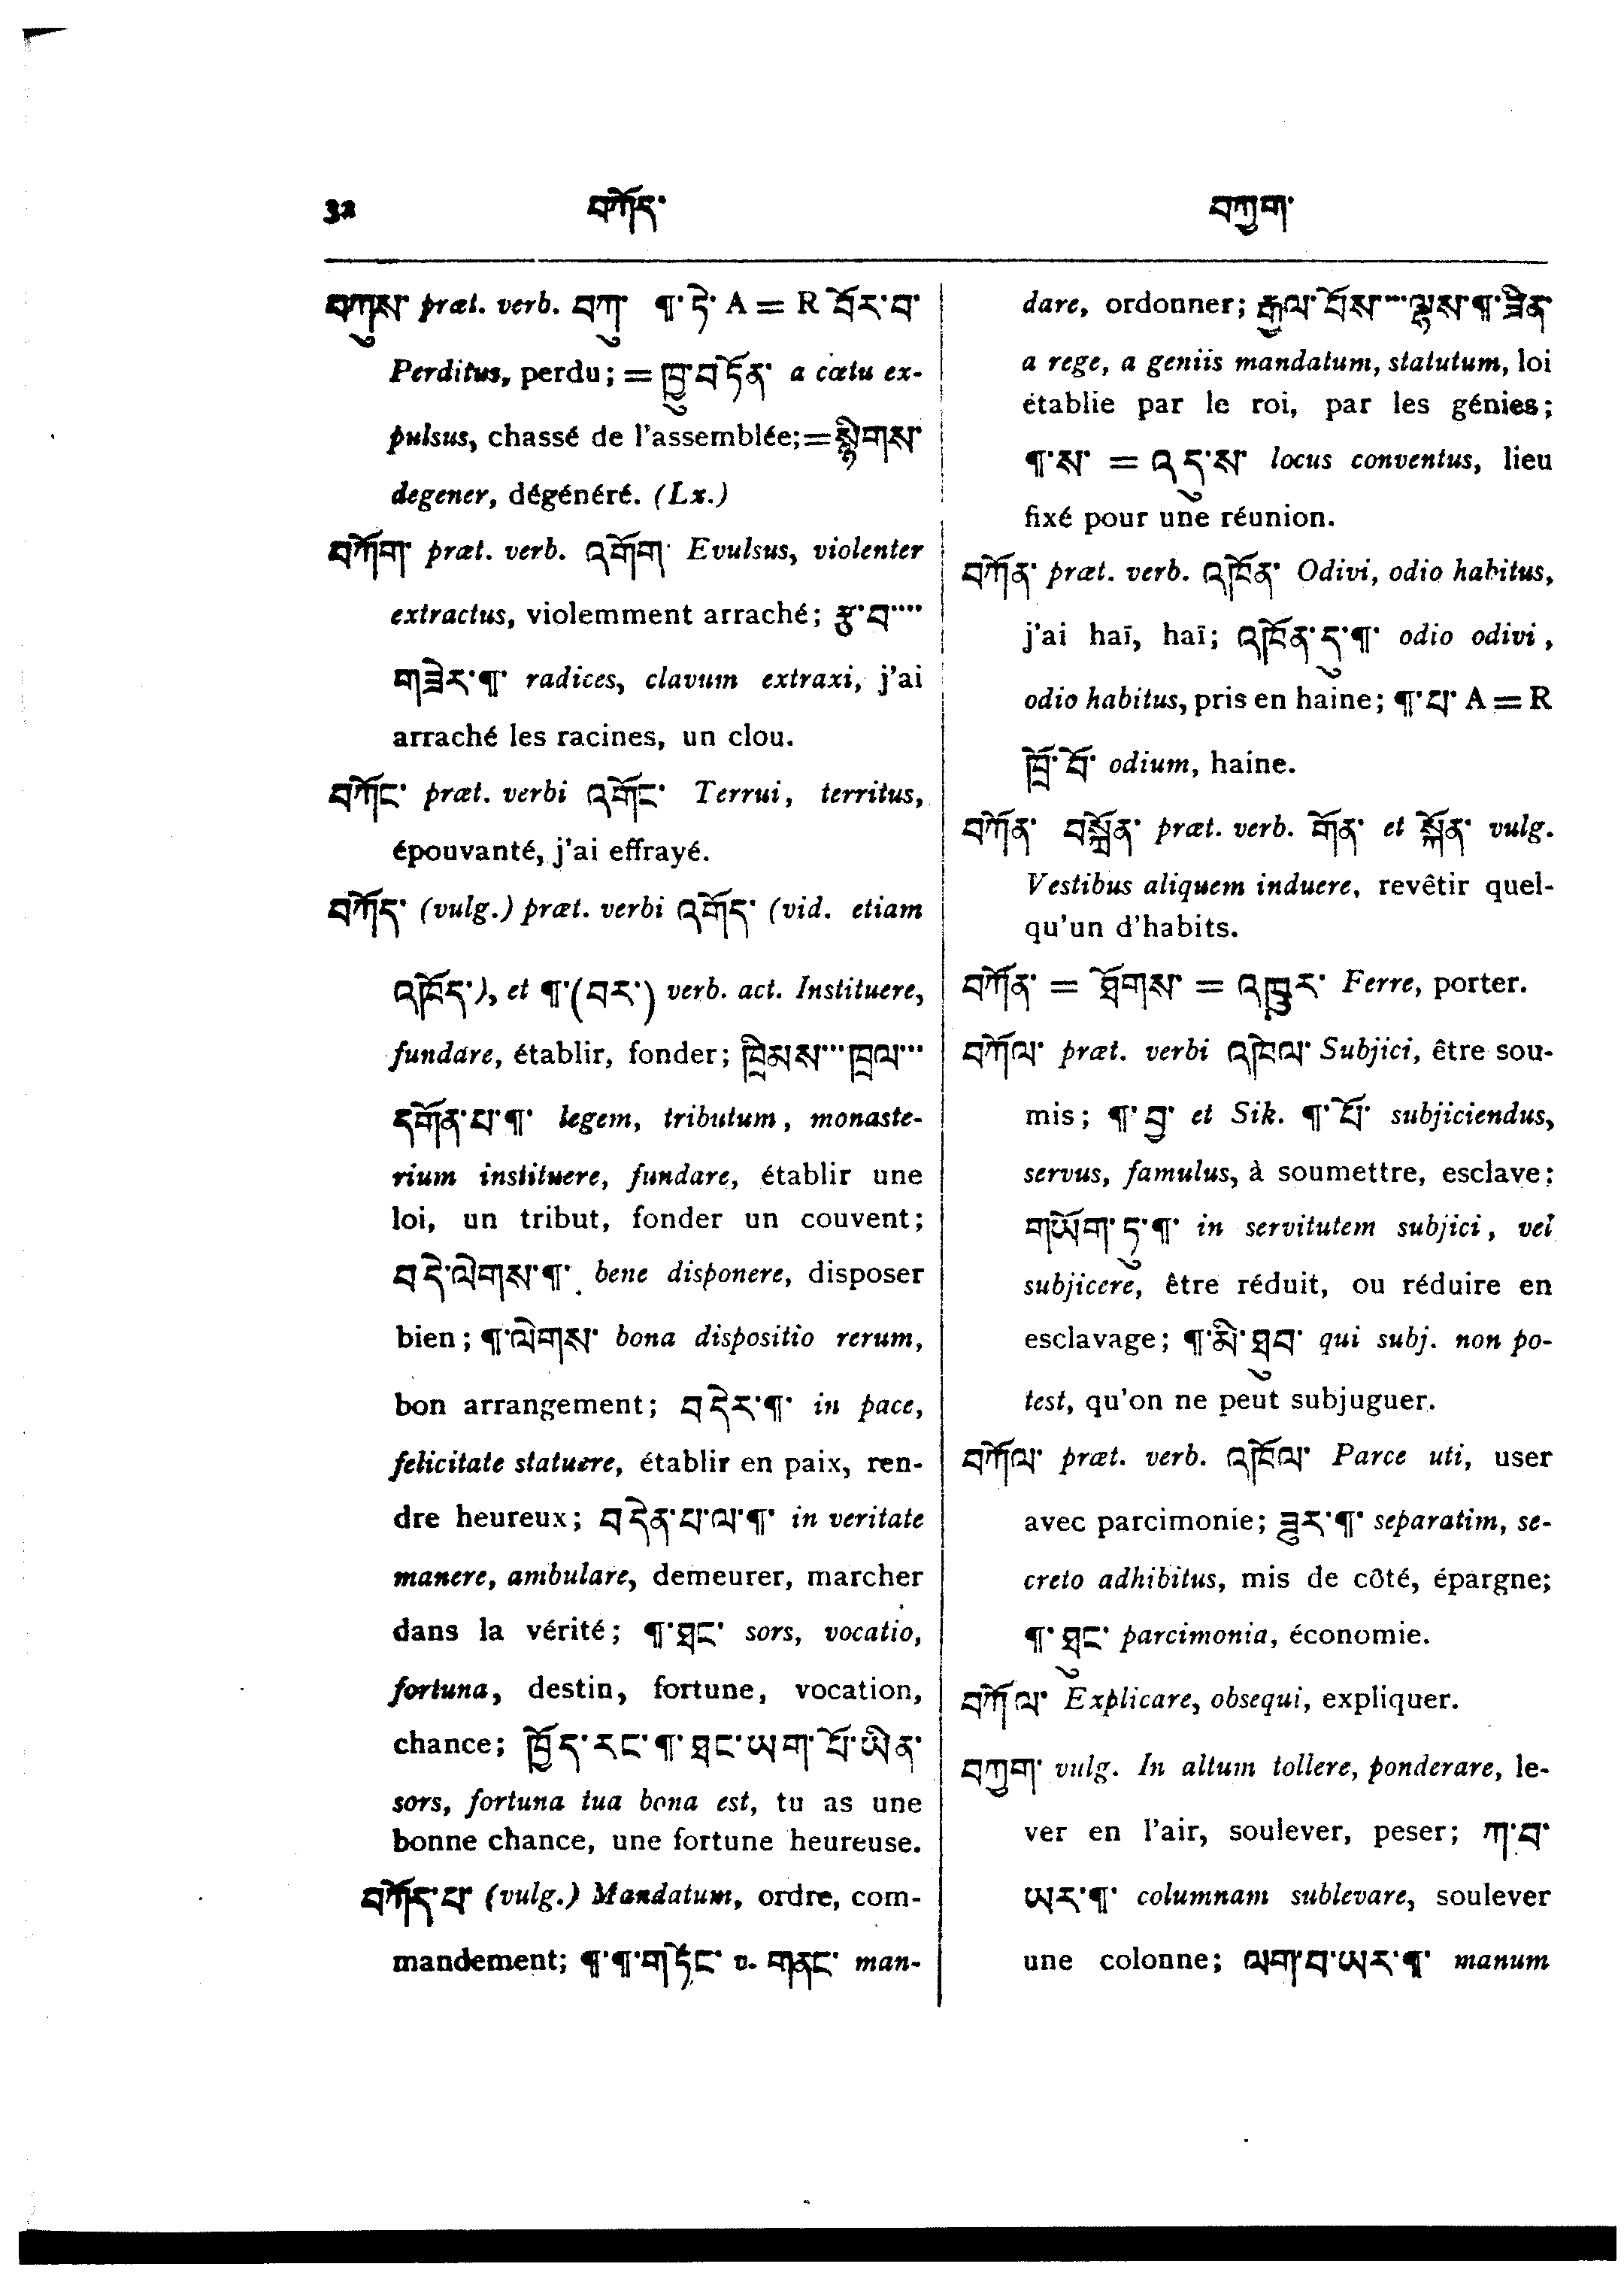 32 བཀོད་ བཀྱག་
བཀུས་ præt. verb. བཀུ་ ¶་ཏེ་ A = R བོར་བ་
Perditus, perdu; = ཁྱུ་བཏོན་ a cœtu ex-
pulsus, chassé de l'assemblée; = སྙིགས་
degener, dégénéré. (Lx.)
བཀོག་ præt. verb. འགོག་ Evulsus, violenter
extractus, violemment arraché; རྩ་བ་····
གཟེར་¶་ radices, clavum extraxi, j'ai
arraché les racines, un clou.
བཀོང་ præt. verbi འགོང་ Terrui, territus,
épouvanté, j'ai effrayé.
བཀོད་ (vulg.) præt. verbi འགོད་ (vid. etiam
འཁོད་), et ¶་(བར་) verb. act. Instituere,
fundare, établir, fonder; ཁྲིམས་···ཁྲལ་···
དགོན་པ་¶་ legem, tributum, monaste-
rium instituere, fundare, établir une
loi, un tribut, fonder un couvent;
བདེ་ལེགས་¶་ bene disponere, disposer
bien; ¶་ལེགས་ bona dispositio rerum,
bon arrangement; བདེར་¶་ in pace,
felicitate statuere, établir en paix, ren-
dre heureux; བདེན་པ་ལ་¶་ in veritate
manere, ambulare, demeurer, marcher
dans la vérité; ¶་ཐང་ sors, vocatio,
fortuna, destin, fortune, vocation,
chance; ཁྱོད་རང་¶་ཐང་ཡག་པོ་ཡིན་
sors, fortuna tua bona est, tu as une
bonne chance, une fortune heureuse.
བཀོད་པ་ (vulg.) Mandatum, ordre, com-
mandement; ¶་¶་གཏོང་ v. གནང་ man-
dare, ordonner; རྒྱལ་པོས་···ལྷས་¶་ཟིན་
a rege, a geniis mandatum, statutum, loi
établie par le roi, par les génies;
¶་ས་ = འདུ་ས་ locus conventus, lieu
fixé pour une réunion.
བཀོན་ præt. verb. འཁོན་ Odivi, odio habitus,
j'ai haï, haï; འཁོན་དུ་¶་ odio odivi,
odio habitus, pris en haine; ¶་པ་ A = R
ཁྲོ་བོ་ odium, haine.
བཀོན་ བསྐོན་ præt. verb. གོན་ et སྐོན་ vulg.
Vestibus aliquem induere, revêtir quel-
qu'un d'habits.
བཀོན་ = ཐོགས་ = འཁུར་ Ferre, porter.
བཀོལ་ præt. verbi འཁོལ་ Subjici, être sou-
mis; ¶་བྱ་ et Sik. ¶་པོ་ subjiciendus,
servus, famulus, à soumettre, esclave;
གཡོག་ཏུ་¶་ in servitutem subjici, vel
subjicere, être réduit, ou réduire en
esclavage; ¶་མི་ཐུབ་ qui subj. non po-
test, qu'on ne peut subjuguer.
བཀོལ་ præt. verb. འཁོལ་ Parce uti, user
avec parcimonie; ཟུར་¶་ separatim, se-
creto adhibitus, mis de côté, épargne;
¶་ཐུང་ parcimonia, économie.
བཀོལ་ Explicare, obsequi, expliquer.
བཀྱག་ vulg. In altum tollere, ponderare, le-
ver en l'air, soulever, peser; ཀ་བ་
ཡར་¶་ columnam sublevare, soulever
une colonne; ལག་པ་ཡར་¶་ manum